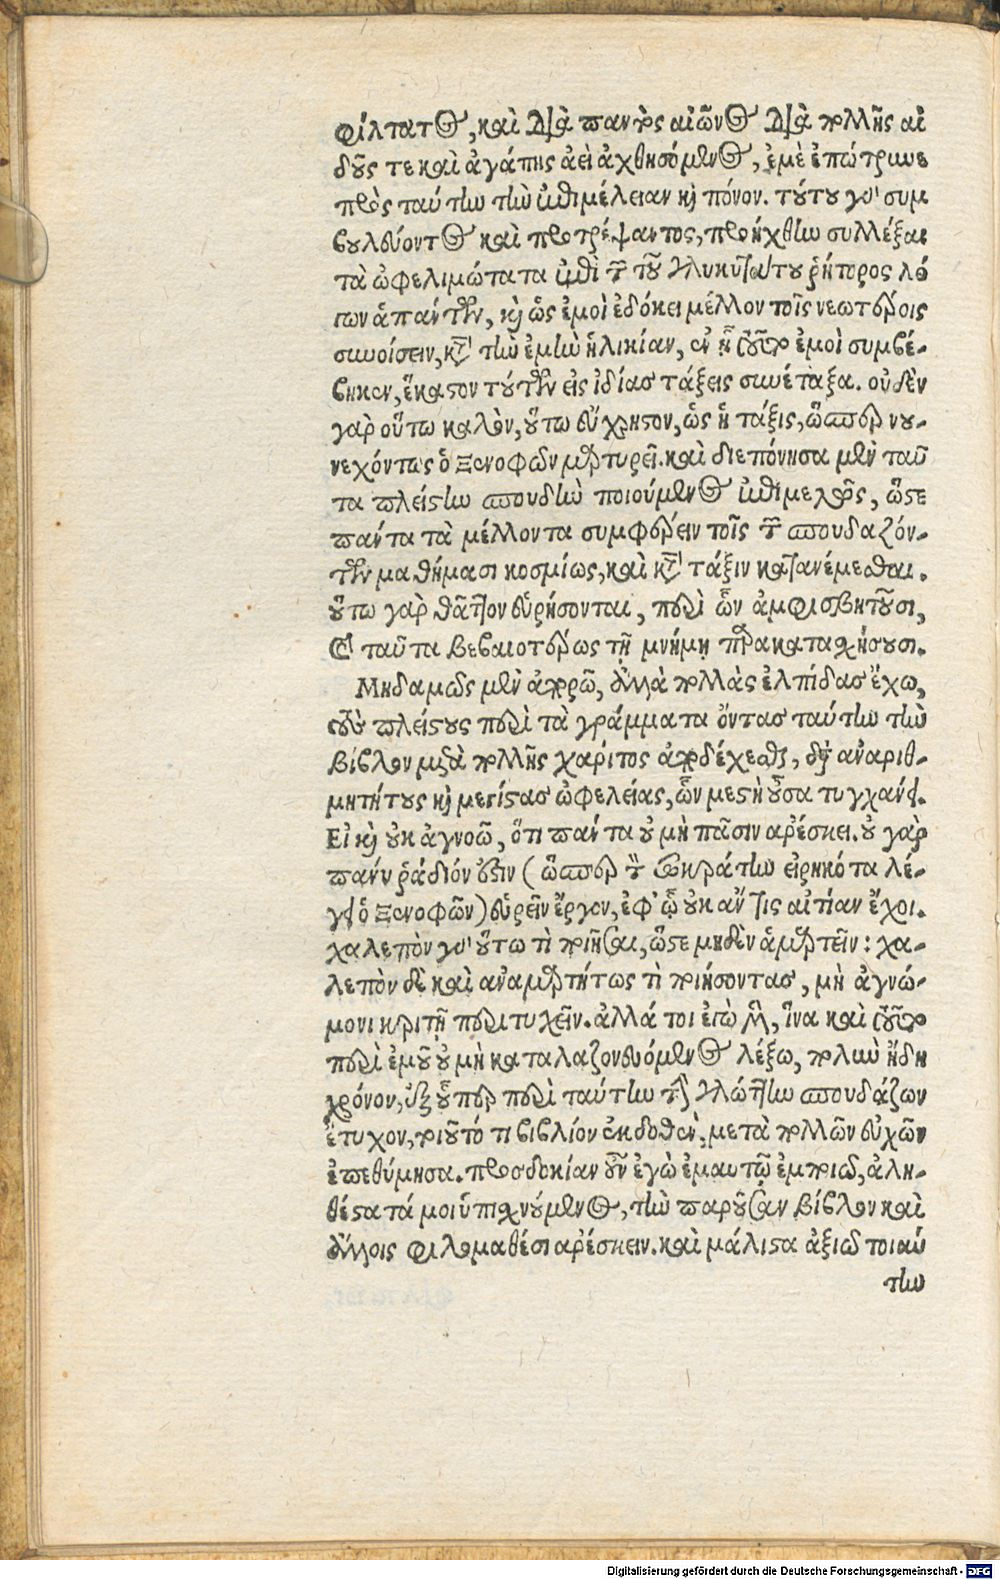 φίλτατος, καὶ διὰ παντὸς αἰῶνος διὰ πολλῆς αἰ
δοῦς τε καὶ ἀγάπης ἀεὶ ἀχθησόμενος, ἐμὲ ἐπώτρυνε
πρὸς ταύτην τὴν ἐπιμέλειαν καὶ πόνον. τούτου γὰρ συμ
βουλεύοντος καὶ προτρέψαντος, προήχθην συλλέξαι
τὰ ὠφελιμώτατα ἐπὶ τῶν τοῦ γλυκυτάτου ῥήτορος λό
γων ἁπάντων, καὶ ὡς ἐμοὶ ἐδόκει μέλλον τοῖς νεωτέροις
συνοίσειν, κατὰ τὴν ἐμὴν ἡλικίαν, ἐν ᾗ τοῦτο ἐμοὶ συμβέ-
βηκεν, ἕκαστον τούτων εἰς ἰδίας τάξεις συνέταξα. οὐδὲν
γὰρ οὕτω καλὸν, οὕτω εὔχρηστον, ὡς ἡ τάξις, ὥσπερ νου-
νεχόντως ὁ Ξενοφῶν μαρτυρεῖ. καὶ διεπόνησα μὲν ταῦ
τα πλείστην σπουδὴν ποιούμενος ἐπιμελῶς, ὥστε
πάντα τὰ μέλλοντα συμφέρειν τοῖς τῶν σπουδαζόν-
των μαθήμασι κοσμίως, καὶ κατὰ τάξιν κατανέμεσθαι.
οὕτω γὰρ θᾶττον εὑρήσονται, περὶ ὧν ἀμφισβητοῦσι,
καὶ ταῦτα βεβαιοτέρως τῇ μνήμῃ παρακατασχήσουσι.
Μηδαμῶς μὲν ἀπορῶ, ἀλλὰ πολλὰς ἐλπίδας ἔχω,
τοὺς πλείστους περὶ τὰ γράμματα ὄντας ταύτην τὴν
βίβλον μετὰ πολλῆς χάριτος ἀποδέχεσθαι, δι' ἀναριθ-
μητήτους καὶ μεγίστας ὠφελείας, ὧν μεστὴ οὖσα τυγχάνει.
Εἰ καὶ οὐκ ἀγνοῶ, ὅτι πάντα οὐ μὴ πᾶσιν ἀρέσκει. οὐ γὰρ
πάνυ ῥάδιόν ἐστιν (ὥσπερ τὸν Σωκράτην εἰρηκότα λέ-
γει ὁ Ξενοφῶν) εὑρεῖν ἔργον, ἐφ' ᾧ οὐκ ἄν τις αἰτίαν ἔχοι.
χαλεπὸν γὰρ οὕτω τὶ ποιῆσαι, ὥστε μηδὲν ἁμαρτεῖν: χα-
λεπὸν δὲ καὶ ἀναμαρτήτως τὶ ποιήσοντας, μὴ ἀγνώ-
μονι κριτῇ περιτυχεῖν. ἀλλά τοι ἐγὼ μὲν, ἵνα καὶ τοῦτο
περὶ ἐμοῦ οὐ μὴ καταλαζονευόμενος λέξω, πολὺν ἤδη
χρόνον, ἐξ οὗπερ περὶ ταύτην τὴν γλώττην σπουδάζων
ἔτυχον, τοιοῦτό τι βιβλίον ἐκδοθὲν, μετὰ πολλῶν εὐχῶν
ἐπεθύμησα. προσδοκίαν οὖν ἐγὼ ἐμαυτῷ ἐμποιῶ, ἀλη-
θέστατά μοι ὑπισχνούμενος, τὴν παροῦσαν βίβλον καὶ
ἄλλοις φιλομαθέσι ἀρέσκειν. καὶ μάλιστα ἀξιῶ τοιαύ
την
Digitalisierung gefördert durch die Deutsche Forschungsgemeinschaft - DFG